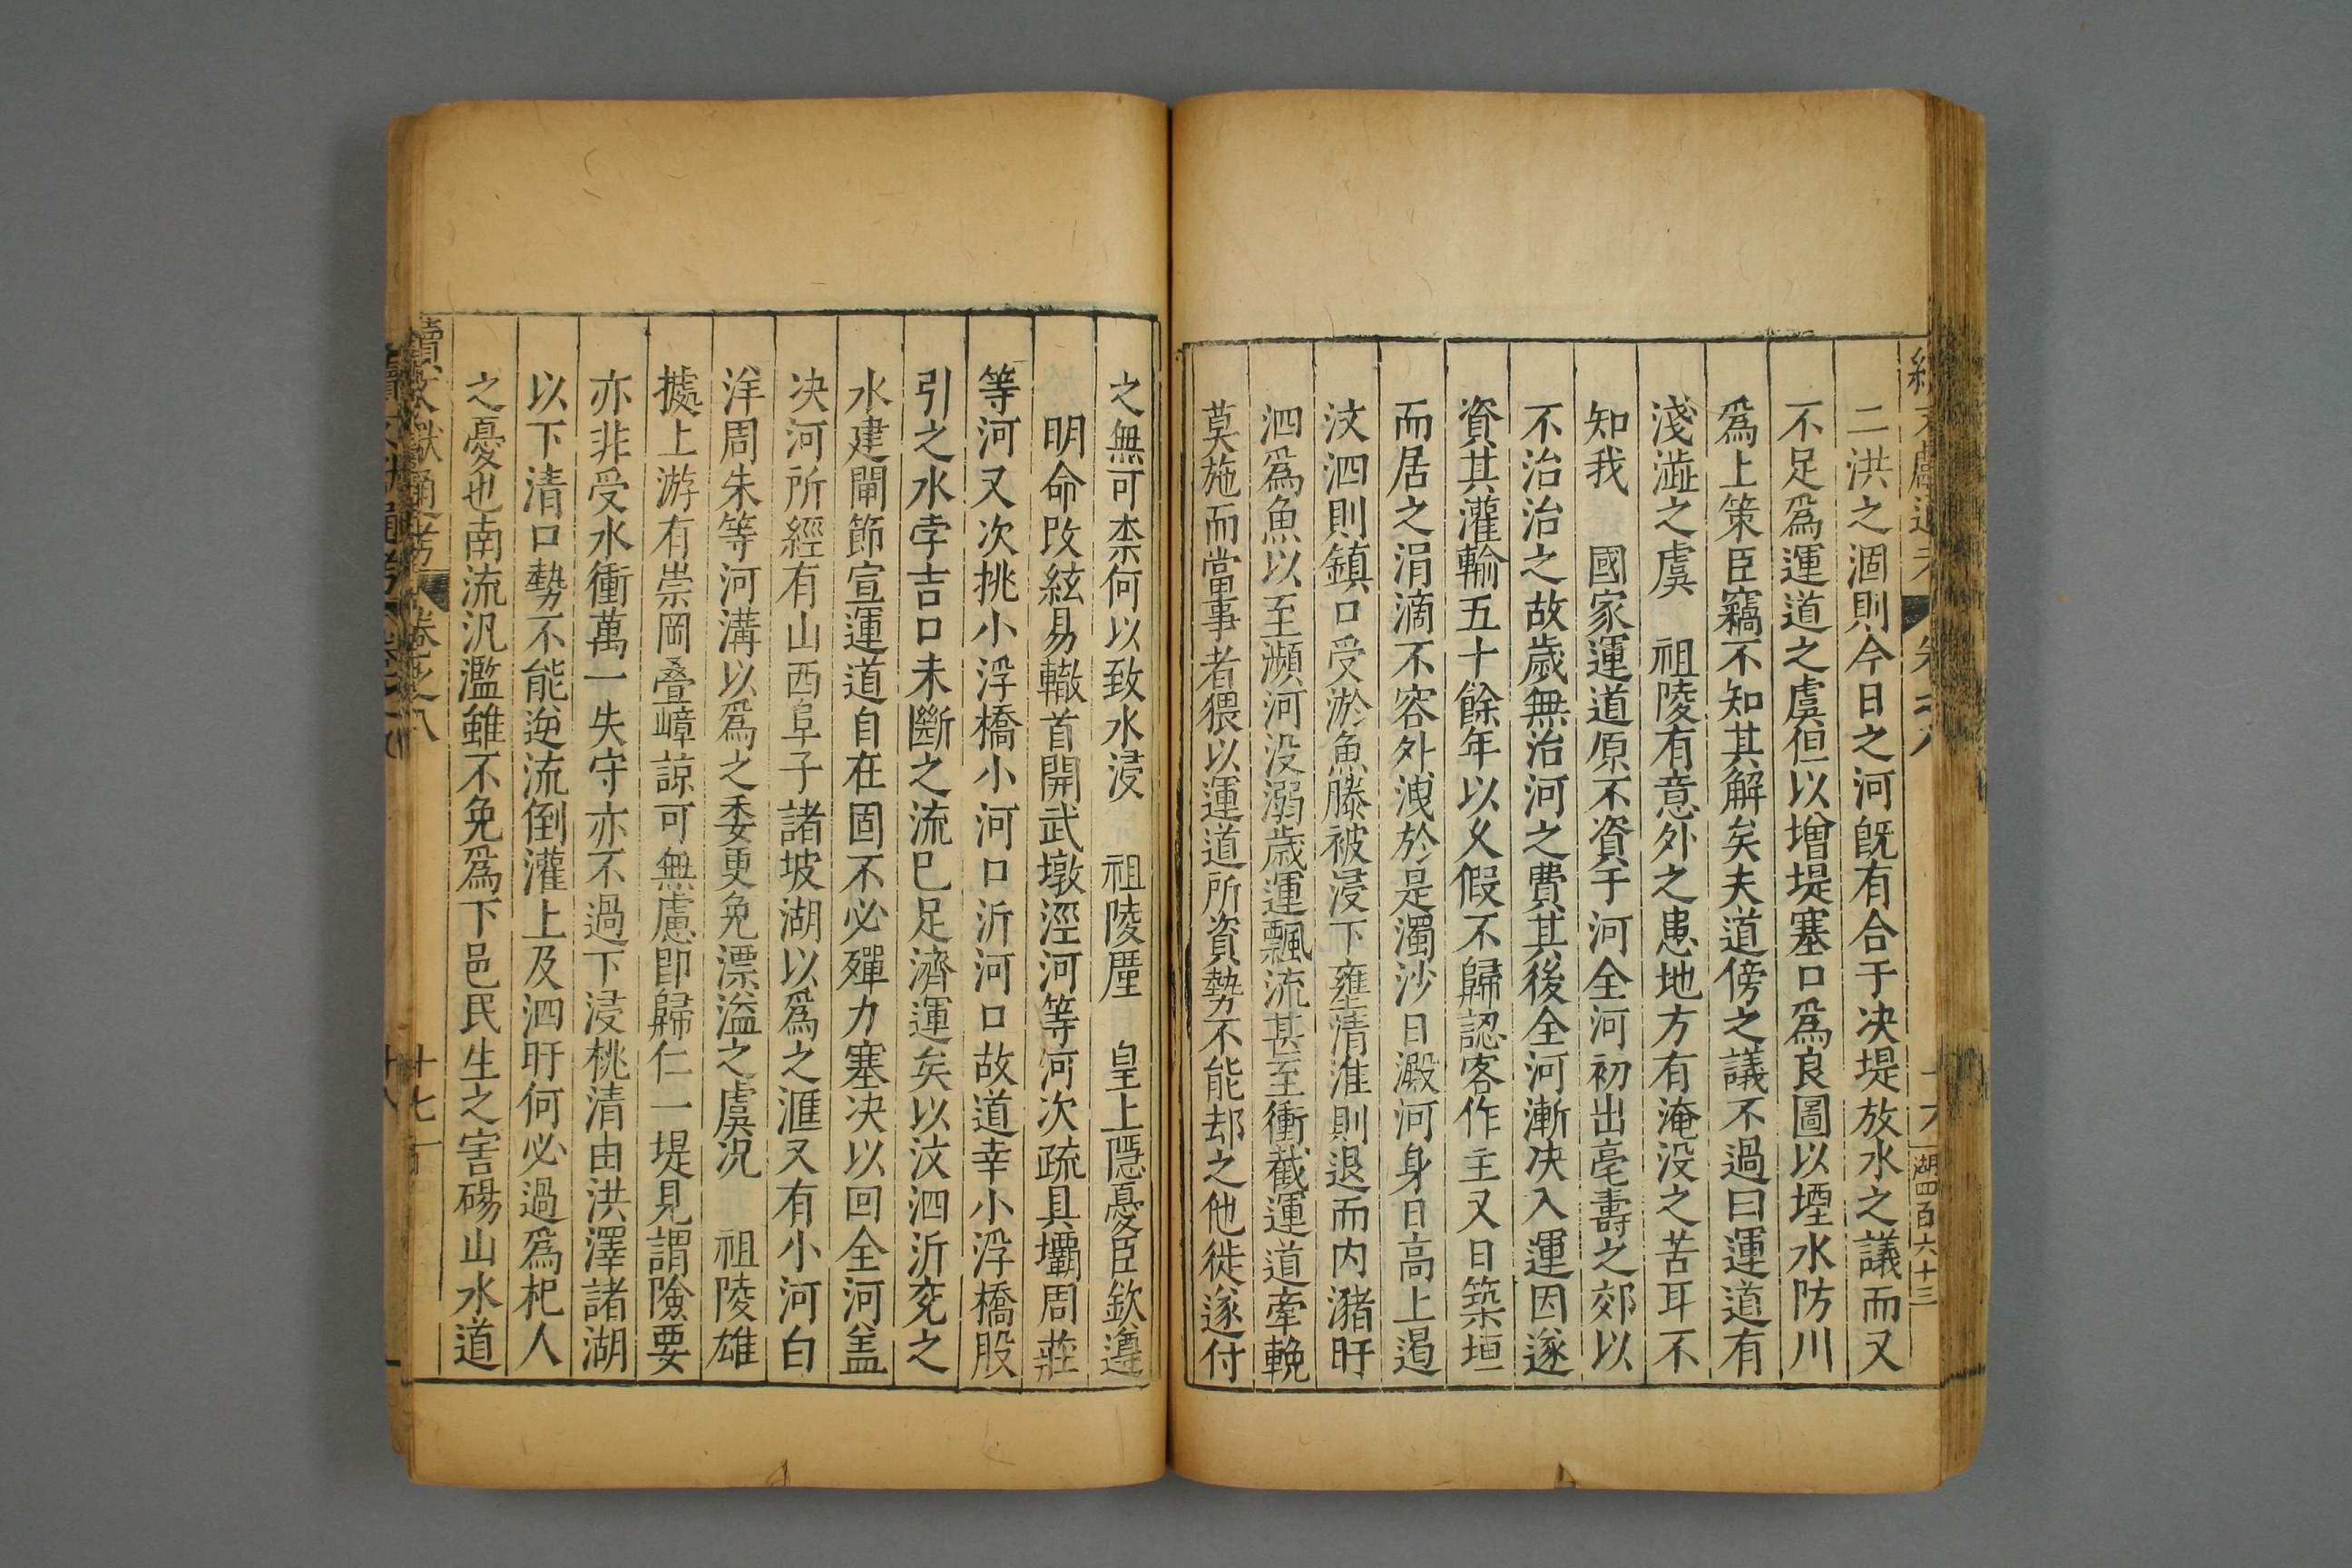 二洪之涸則今日之河旣有合于决堤放水之議而又
不足爲運道之虞但以增堤塞口爲良圖以堙水防川
爲上策臣竊不知其解矣夫道傍之議不過曰運道有
淺澁之虞 祖陵有意外之患地方有淹没之苦耳不
知我 國家運道原不資于河全河初出亳壽之郊以
不治治之故歲無治河之費其後全河漸决入運因遂
資其灌輸五十餘年以乂假不歸認客作主又日築垣
而居之涓滴不容外洩於是濁沙日澱河身日高上遏
汶泗則鎮口受淤魚滕被浸下壅清淮則退而内瀦盱
泗爲魚以至瀕河没溺歲運飄流甚至衝截運道牽輓
莫施而當事者猥以運道所資勢不能却之他徙遂付
之無可柰何以致水浸 祖陵廑 皇上隱憂臣欽遵
明命改絃易轍首開武墩涇河等河次疏具壩周莊
等河又次挑小浮橋小河口沂河口故道幸小浮橋股
引之水孛吉口未斷之流巳足濟運矣以汶泗沂兖之
水建閘節宣運道自在固不必殫力塞决以回全河盖
决河所經有山西阜子諸坡湖以爲之滙又有小河白
洋周朱等河溝以爲之委更免漂溢之虞况 祖陵雄
據上游有崇岡叠嶂諒可無慮卽歸仁一堤見謂險要
亦非受水衝萬一失守亦不過下浸桃清由洪澤諸湖
以下清口勢不能逆流倒灌上及泗盱何必過爲杞人
之憂也南流汎濫雖不免爲下邑民生之害碭山水道
續文獻通考 卷之八 十七
湖四百六十三